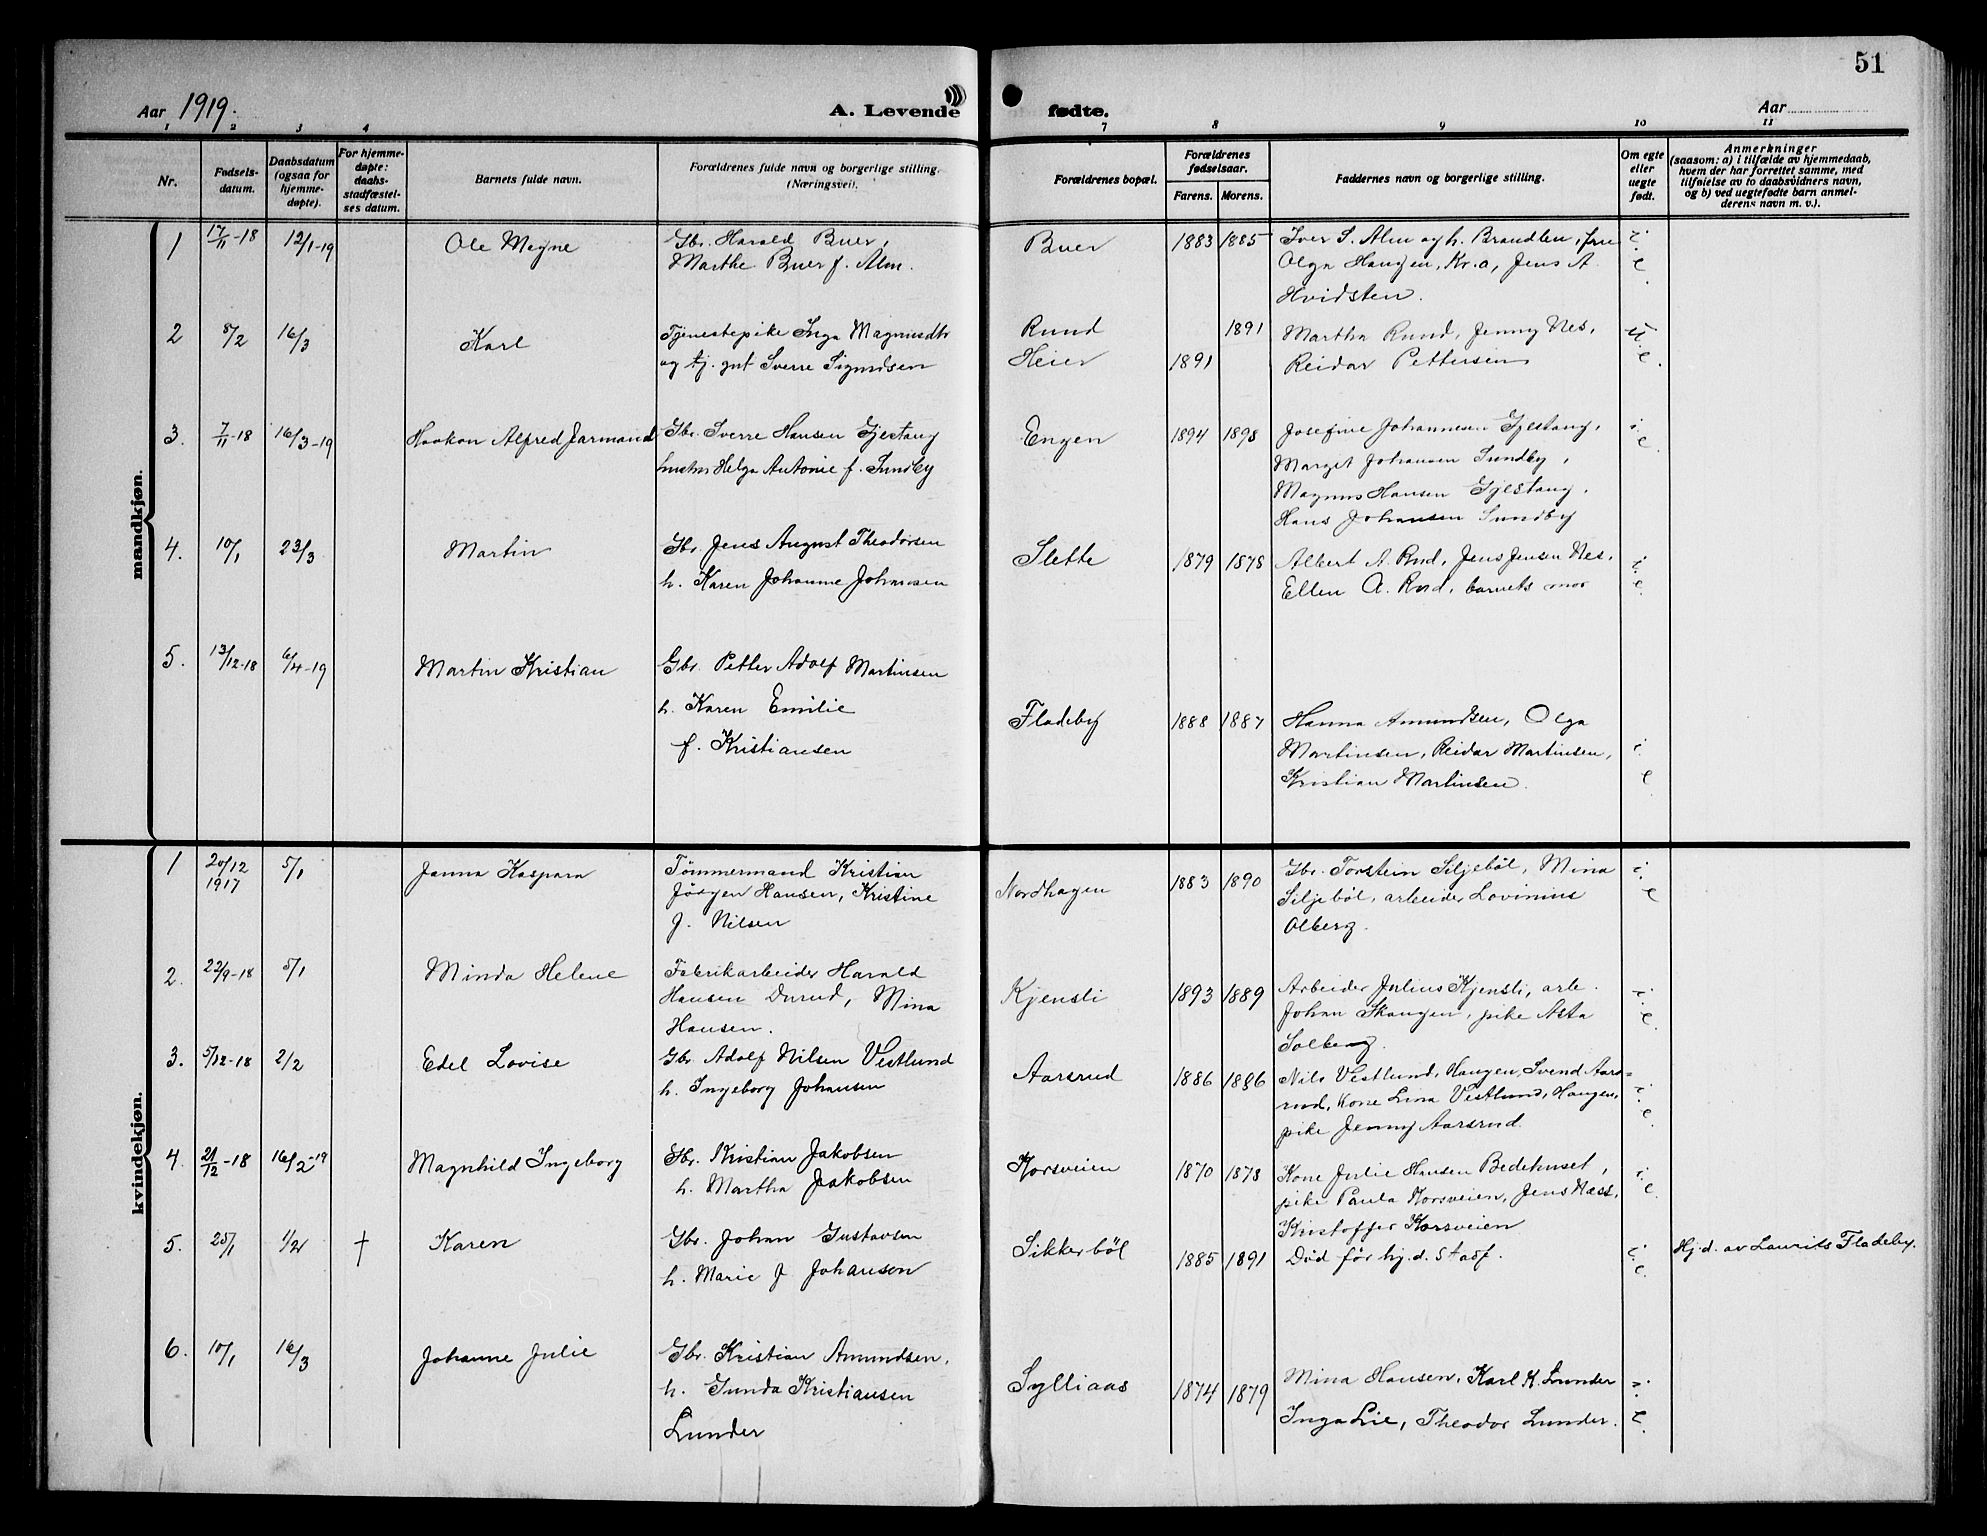 51
Aar 1919.
A. Levende fødte.
Aar
1 2 3 4 7 8 9 10 11
Nr.
Fødsels-
datum.
Daabsdatum
(ogsaa for
hjemme-
døpte).
For hjemme-
døpte:
daabs-
stadfæstel-
ses datum.
Barnets fulde navn.
Forældrenes fulde navn og borgerlige stilling.
(Næringsvei).
Forældrenes bopæl.
Forældrenes
fødselsaar.
Farens. Morens.
Faddernes navn og borgerlige stilling.
Om egte
eller
uegte
født.
Anmerkninger
(saasom: a) i tilfælde av hjemmedaab,
hvem der har forrettet samme, med
tilføielse av to daabsvidners navn,
og b) ved uegtefødte barn anmel-
derens navn m. v.).
mandkjøn.
1 17/11-18 12/1-19 Ole Magne
Gbr. Harald Buer,
Marthe Buer f. Alm.
Buer 1883 1885
Iver S. Alm og h. Brandlen, fru
Olga Haugen, Kr.a, Jens A.
Hvidsten.
i.
e.
2 8/2 16/3 Karl
Tjenestepike Inga Magnusdtr
og tj. gut Sverre Sigurdsen
Rund 1891
Heier 1891
Martha Rund, Jenny Nes,
Reidar Pettersen
u.
e.
3. 7/11-18 16/3-19 Haakon Alfred Jarmand
Gbr. Sverre Hansen Gjestang
hustru Helga Antonie f. Sundby
Engen 1894 1898
Josefine Johannesen Gjestang,
Margit Johansen Sundby,
Magnus Hansen Gjestang,
Hans Johansen Sundby
i.
e.
4. 10/1 23/3 Martin
Gbr. Jens August Theodorsen
h. Karen Johanne Johansen
Slette 1879 1878
Albert A. Rud, Jens Jensen Nes,
Ellen A. Rud, barnets mor
i.
e.
5. 13/12-18 6/4-19 Martin Kristian
Gbr. Petter Adolf Martinsen
h. Karen Emilie
f. Kristiansen
Fladeby 1888 1887
Hanna Amundsen, Olga
Martinsen, Reidar Martinsen,
Kristian Martinsen.
i.
e
kvindekjøn.
1 20/12 5/1 Janna Kaspara
1917
Tømmermand Kristian
Jörgen Hansen, Kristine
f. Nilsen
Nordhagen 1883 1890
Gbr. Torstein Siljeböl, Mina
Siljeböl, arbeider Lovinius
Olberg.
i.
e
2. 22/9-18 5/1 Minda Helene
Fabrikarbeider Harald
Hansen Durud, Mina
Hansen.
Kjensli 1893 1889
Arbeider Julius Kjensli, arb.
Johan Skaugen, pike Asta
Solberg.
i.
e.
3. 5/12-18 2/2 Edel Lovise
Gbr Adolf Nilsen Vestlund
h. Ingeborg Johansen
Aarsrud 1886 1886
Nils Vestlund, Haugen, Svend Aars-
rud, Kone Lina Vestlund, Haugen,
pike Jenny Aarsrud.
i.
e.
4. 21/12-18 16/2-19 Magnhild Ingeborg
Gbr. Kristian Jakobsen
h. Martha Jakobsen
Korsveien 1870 1878
Kone Julie Hansen Bedehuset,
pike Paula Korsveien, Jens Næss,
Kristoffer Korsveien
i.
e.
5. 25/1 1/2 † Karen
Gbr. Johan Gustavsen
h. Marie f Johansen
Sikkerböl 1885 1891
Död før hj.d. stadf.
i.
e.
Hj.d. av Laurits Fladeby.
6. 10/1 16/3 Johanne Julie
Gbr. Kristian Amundsen,
h. Gunda Kristiansen
Lunder
Sylliaas 1874 1879
Mina Hansen, Karl K. Lunder
Inga Lie, Theodor Lunder.
i.
e.